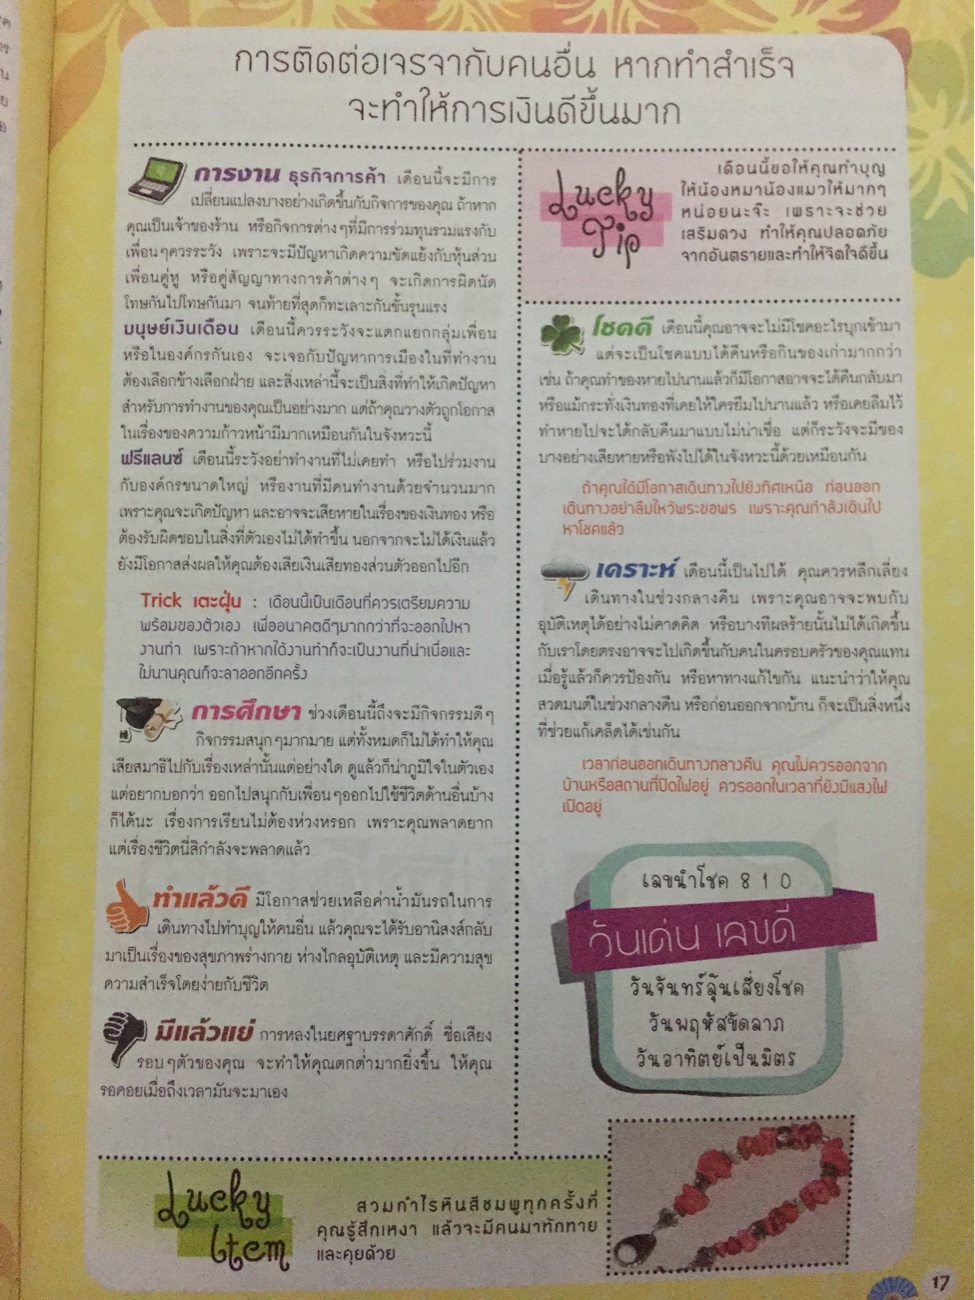 การติดต่อเจรจากับคนอื่น หากทำสำเร็จ
จะทำให้การเงินดีขึ้นมาก
การงาน ธุรกิจการค้า เดือนนี้จะมีการ
เปลี่ยนแปลงบางอย่างเกิดขึ้นกับกิจการของคุณ ถ้าหาก
คุณเป็นเจ้าของร้าน หรือกิจการต่างๆที่มีการร่วมทุนรวมแรงกับ
เพื่อนๆควรระวัง เพราะจะมีปัญหาเกิดความขัดแย้งกับหุ้นส่วน
เพื่อนคู่หู หรือคู่สัญญาทางการค้าต่างๆ จะเกิดการผิดนัด
โทษกันไปโทษกันมา จนท้ายที่สุดก็ทะเลาะกันขั้นรุนแรง
มนุษย์เงินเดือน เดือนนี้ควรระวังจะแตกแยกกลุ่มเพื่อน
หรือในองค์กรกันเอง จะเจอกับปัญหาการเมืองในที่ทำงาน
ต้องเลือกข้างเลือกฝ่าย และสิ่งเหล่านี้จะเป็นสิ่งที่ทำให้เกิดปัญหา
สำหรับการทำงานของคุณเป็นอย่างมาก แต่ถ้าคุณวางตัวถูกโอกาส
ในเรื่องของความก้าวหน้ามีมากเหมือนกันในจังหวะนี้
ฟรีแลนซ์ เดือนนี้ระวังอย่าทำงานที่ไม่เคยทำ หรือไปร่วมงาน
กับองค์กรขนาดใหญ่ หรืองานที่มีคนทำงานด้วยจำนวนมาก
เพราะคุณจะเกิดปัญหา และอาจจะเสียหายในเรื่องของเงินทอง หรือ
ต้องรับผิดชอบในสิ่งที่ตัวเองไม่ได้ทำขึ้น นอกจากจะไม่ได้เงินแล้ว
ยังมีโอกาสส่งผลให้คุณต้องเสียเงินเสียทองส่วนตัวออกไปอีก
Trick เตะฝุ่น : เดือนนี้เป็นเดือนที่ควรเตรียมความ
พร้อมของตัวเอง เพื่ออนาคตดีๆมากกว่าที่จะออกไปหา
งานทำ เพราะถ้าหากได้งานทำก็จะเป็นงานที่น่าเบื่อและ
ไม่นานคุณก็จะลาออกอีกครั้ง
การศึกษา ช่วงเดือนนี้ถึงจะมีกิจกรรมดีๆ
กิจกรรมสนุกๆมากมาย แต่ทั้งหมดก็ไม่ได้ทำให้คุณ
เสียสมาธิไปกับเรื่องเหล่านั้นแต่อย่างใด ดูแล้วก็น่าภูมิใจในตัวเอง
แต่อยากบอกว่า ออกไปสนุกกับเพื่อนๆออกไปใช้ชีวิตด้านอื่นบ้าง
ก็ได้นะ เรื่องการเรียนไม่ต้องห่วงหรอก เพราะคุณพลาดยาก
แต่เรื่องชีวิตนี่สิกำลังจะพลาดแล้ว
ทำแล้วดี มีโอกาสช่วยเหลือค่าน้ำมันรถในการ
เดินทางไปทำบุญให้คนอื่น แล้วคุณจะได้รับอานิสงส์กลับ
มาเป็นเรื่องของสุขภาพร่างกาย ห่างไกลอุบัติเหตุ และมีความสุข
ความสำเร็จโดยง่ายกับชีวิต
มีแล้วแย่ การหลงในยศฐาบรรดาศักดิ์ ชื่อเสียง
รอบๆตัวของคุณ จะทำให้คุณตกต่ำมากยิ่งขึ้น ให้คุณ
รอคอยเมื่อถึงเวลามันจะมาเอง
Lucky
Tip
เดือนนี้ขอให้คุณทำบุญ
ให้น้องหมาน้องแมวให้มากๆ
หน่อยนะจ๊ะ เพราะจะช่วย
เสริมดวง ทำให้คุณปลอดภัย
จากอันตรายและทำให้จิตใจดีขึ้น
โชคดี เดือนนี้คุณอาจจะไม่มีโชคอะไรบุกเข้ามา
แต่จะเป็นโชคแบบได้คืนหรือกินของเก่ามากกว่า
เช่น ถ้าคุณทำของหายไปนานแล้วก็มีโอกาสอาจจะได้คืนกลับมา
หรือแม้กระทั่งเงินทองที่เคยให้ใครยืมไปนานแล้ว หรือเคยลืมไว้
ทำหายไปจะได้กลับคืนมาแบบไม่น่าเชื่อ แต่ก็ระวังจะมีของ
บางอย่างเสียหายหรือพังไปได้ในจังหวะนี้ด้วยเหมือนกัน
ถ้าคุณได้มีโอกาสเดินทางไปยังทิศเหนือ ก่อนออก
เดินทางอย่าลืมไหว้พระขอพร เพราะคุณกำลังเดินไป
หาโชคแล้ว
เคราะห์ เดือนนี้เป็นไปได้ คุณควรหลีกเลี่ยง
เดินทางในช่วงกลางคืน เพราะคุณอาจจะพบกับ
อุบัติเหตุได้อย่างไม่คาดคิด หรือบางทีผลร้ายนั้นไม่ได้เกิดขึ้น
กับเราโดยตรงอาจจะไปเกิดขึ้นกับคนในครอบครัวของคุณแทน
เมื่อรู้แล้วก็ควรป้องกัน หรือหาทางแก้ไขกัน แนะนำว่าให้คุณ
สวดมนต์ในช่วงกลางคืน หรือก่อนออกจากบ้าน ก็จะเป็นสิ่งหนึ่ง
ที่ช่วยแก้เคล็ดได้เช่นกัน
เวลาก่อนออกเดินทางกลางคืน คุณไม่ควรออกจาก
บ้านหรือสถานที่ปิดไฟอยู่ ควรออกในเวลาที่ยังมีแสงไฟ
เปิดอยู่
เลขนำโชค 8 1 0
วันเด่น เลขดี
วันจันทร์ลุ้นเสี่ยงโชค
วันพฤหัสขัดลาภ
วันอาทิตย์เป็นมิตร
Lucky
Item
สวมกำไรหินสีชมพูทุกครั้งที่
คุณรู้สึกเหงา แล้วจะมีคนมาทักทาย
และคุยด้วย
17